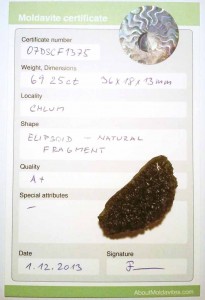 Moldavite certificate
Certificate number
07DSCF1375
Weight, Dimensions
69.25ct 36x18x13mm
Locality
CHLUM
Shape
ELIPSOID - NATURAL
FRAGMENT
Quality
A+
Special attributes
-
Date
Signature
1.12.2013
AboutMoldavites.com